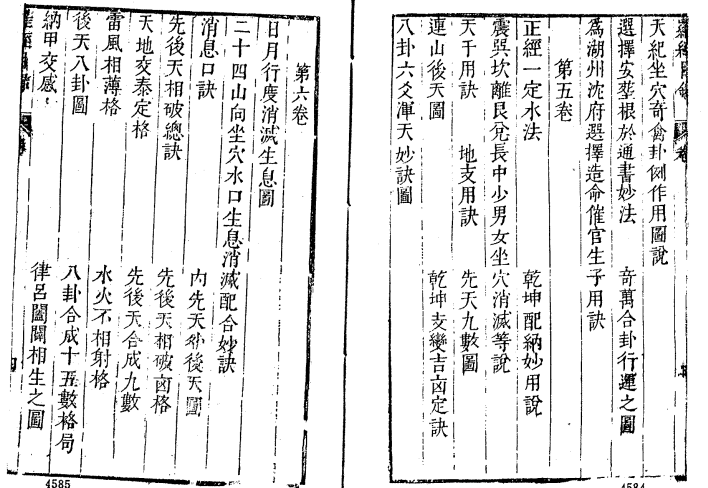 天紀坐穴奇禽卦例作用圖說
選擇安塟根於通書妙法 奇萬合卦行運之圖
爲湖州沈府選擇造命催官生子用訣
第五卷
正經一定水法 乾坤配納妙用說
震巽坎離艮兌長中少男女坐穴消滅等說
天干用訣 地支用訣 先天九數圖
連山後天圖 乾坤支變吉凶定訣
八卦六爻渾天妙訣圖
4584
第六卷
日月行度消滅生息圖
二十四山向坐穴水口生息消滅配合妙訣
消息口訣 內先天外後天圖
先後天相破總訣 先後天相破凶格
天地交泰定格 先後天合成九數
雷風相薄格 水火不相射格
後天八卦圖 八卦合成十五數格局
納甲交感 律呂闔闢相生之圖
四
4585